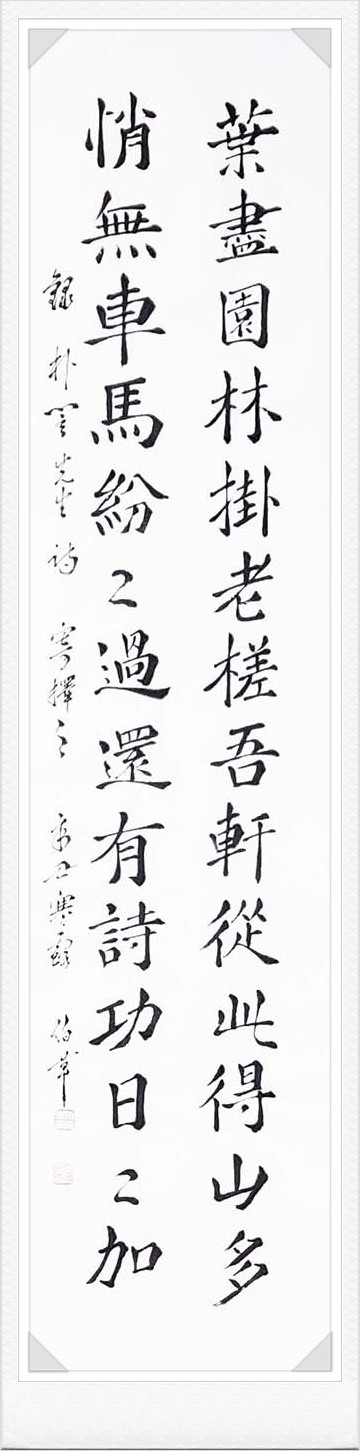 葉盡園林掛老槎吾軒從此得山多
悄無車馬紛〻過還有詩功日〻加
錄朴誾先生詩 寄擇之 辛丑寒露